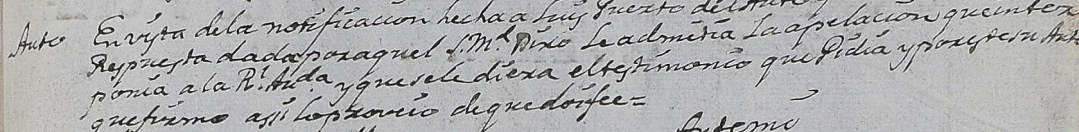 Auto En vista dela notificacion hecha a Luis Puerto del Auto y
Respuesta dada por aquel S. Md. Dixo Le admitia La apelacion que inter
ponia a la Rl. Auda. y que sele diera el testimonio que Pidia y por este su Auto
que firmo assi lo proveio de que doi fee =
Ante mi